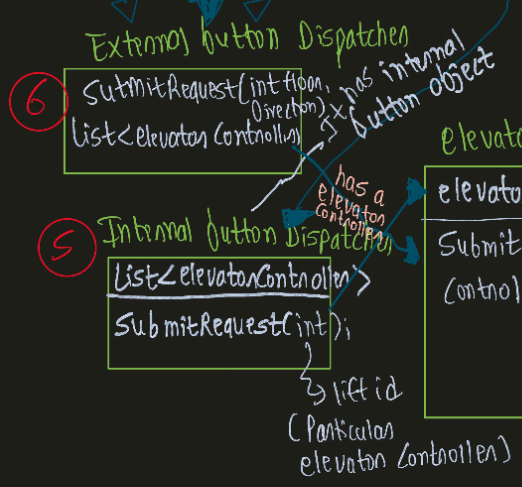 External button Dispatcher
6
submitRequest(int floor,
Direction)
List<elevator Controller>
It has internal
button object
has a
elevator
controller
elevato
elevato
Submit
Control
5
Internal button Dispatcher
List<elevatorController>
SubmitRequest(int);
lift id
(Particular
elevator Controller)